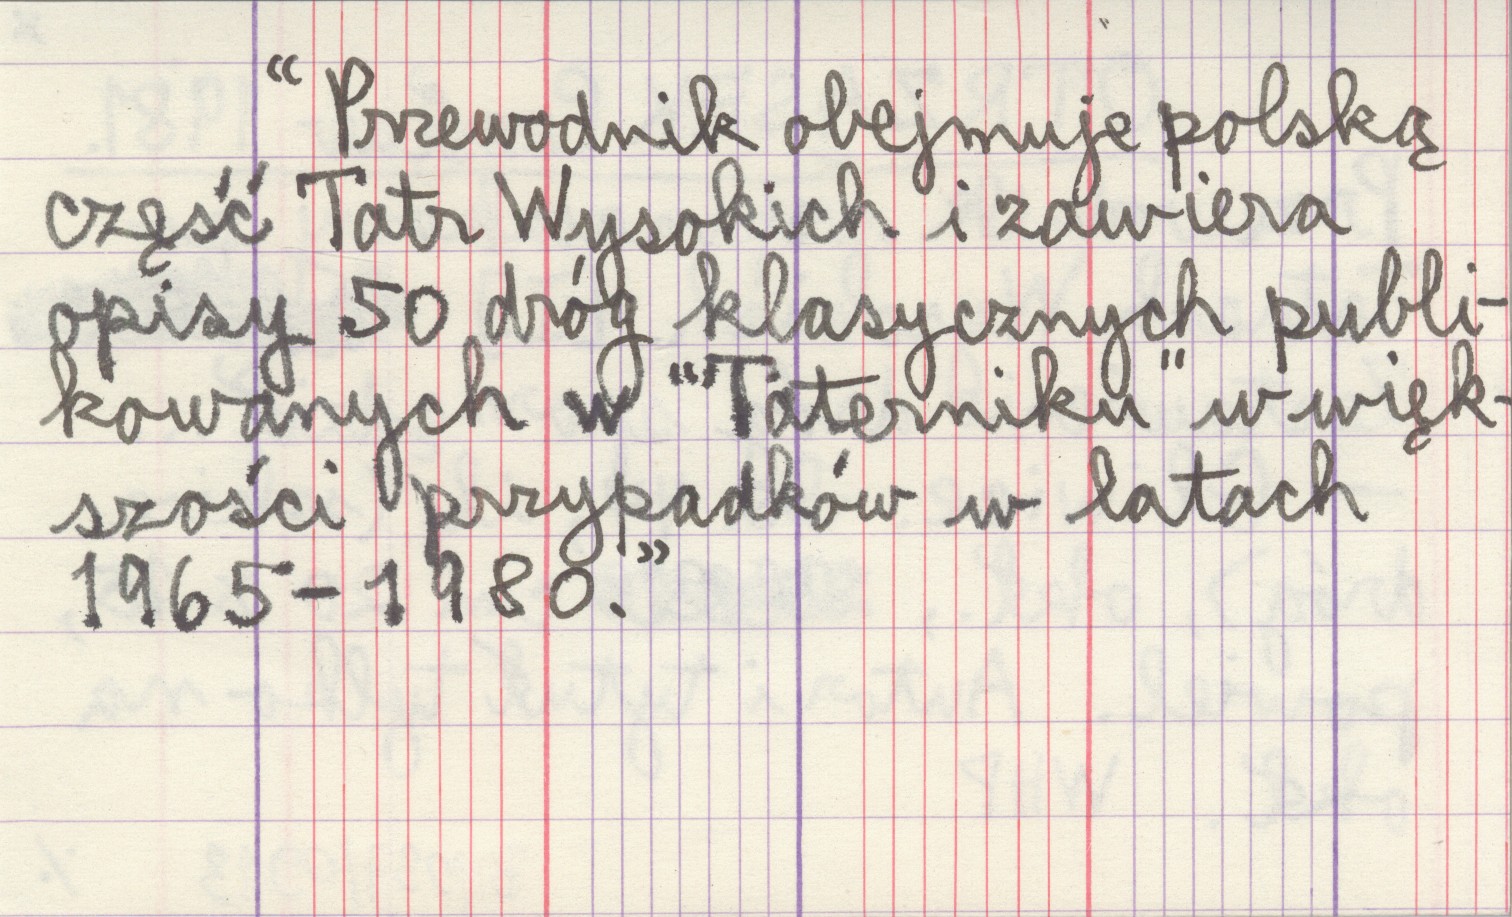 “Przewodnik obejmuje polską
część Tatr Wysokich i zawiera
opisy 50 dróg klasycznych publi-
kowanych w “Taterniku” w więk-
szości przypadków w latach
1965-1980.”